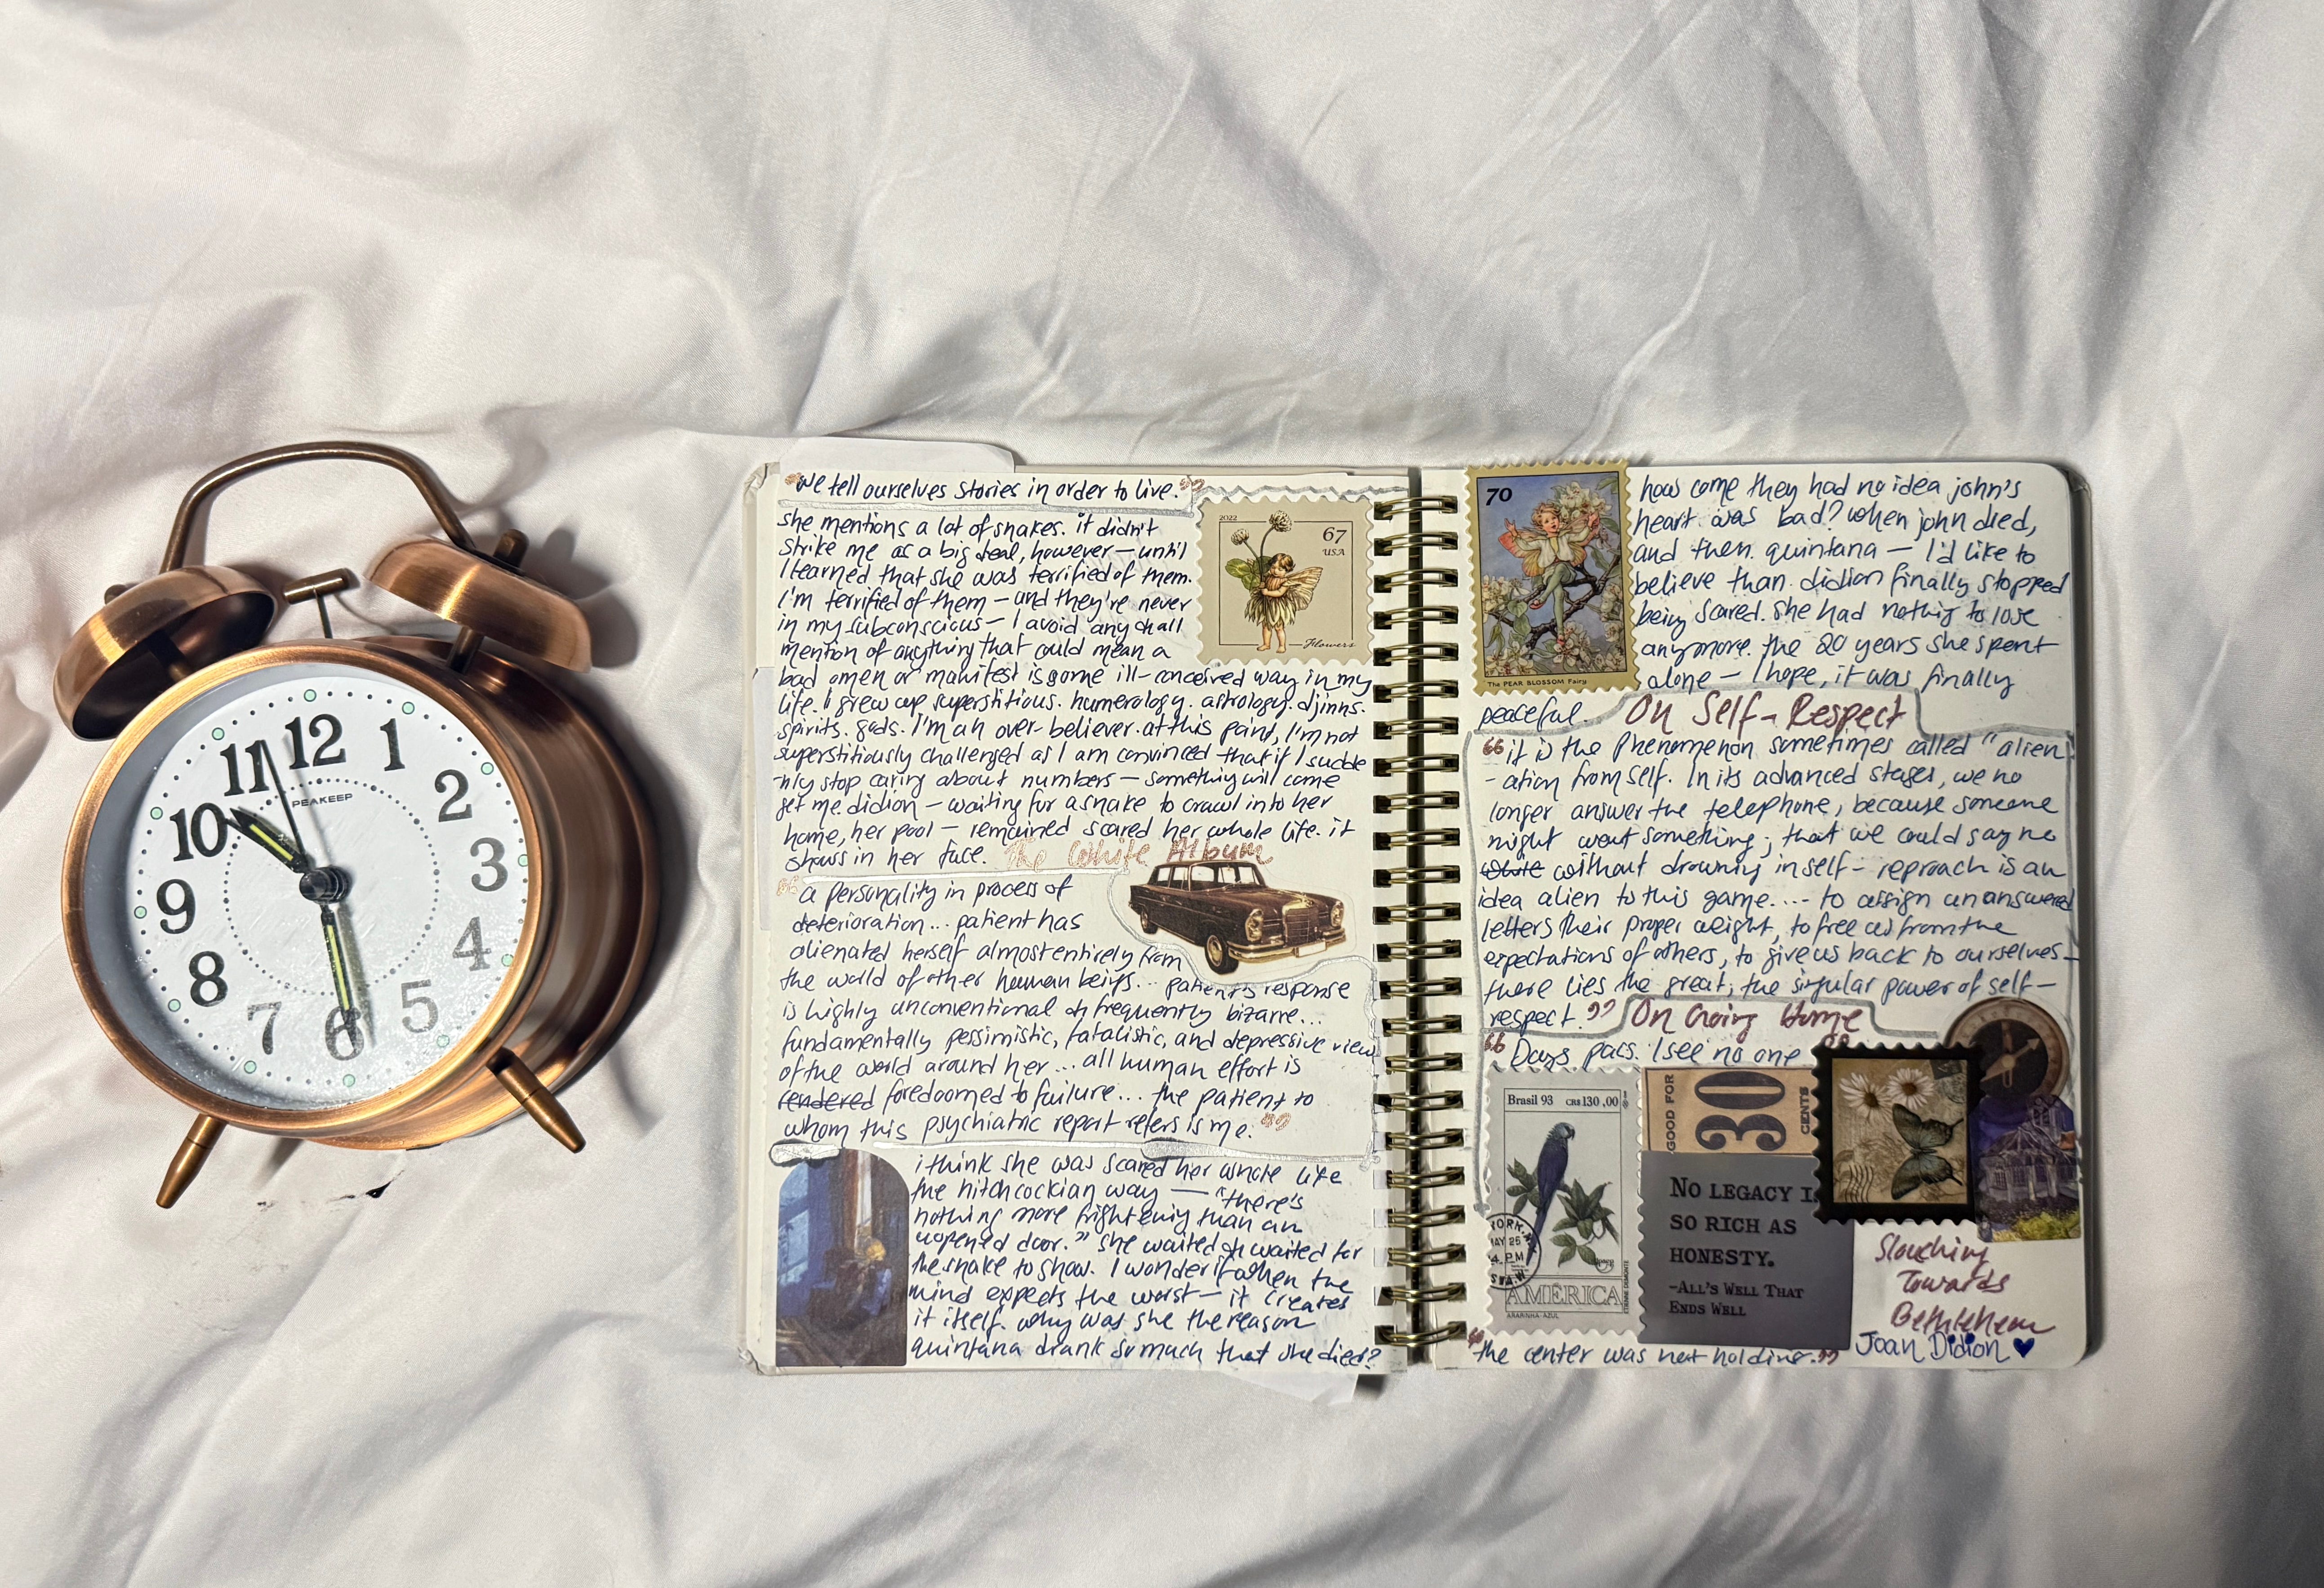 12
1
2
3
4
5
6
7
8
9
10
11
PEAKEEP
"we tell ourselves stories in order to live."
she mentions a lot of snakes. it didn't
strike me as a big deal, however — until
I learned that she was terrified of them.
I'm terrified of them — and they're never
in my subconscious — I avoid any
mention of anything that could mean a
bad omen or manifest is some ill-conceived way in my
life. I grew up superstitious. numerology. astrology. djinns.
spirits. gods. I'm an over-believer. at this point, I'm not
superstitiously challenged as I am convinced that if I sudde
-nly stop caring about numbers — something will come
get me. didion — waiting for a snake to crawl into her
home, her pool — remained scared her whole life. it
shows in her face. The White Album
"a personality in process of
deterioration... patient has
alienated herself almost entirely from
the world of other human beings... patient's response
is highly unconventional & frequently bizarre...
fundamentally pessimistic, fatalistic, and depressive view
of the world around her... all human effort is
rendered foredoomed to failure... the patient to
whom this psychiatric report refers is me."
i think she was scared her whole life
the hitchcockian way — "there's
nothing more frightening than an
unopened door." she waited & waited for
the snake to show. I wonder if when the
mind expects the worst — it creates
it itself. why was she the reason
quintana drank so much that she died?
2022
67
USA
Flowers
70
The PEAR BLOSSOM Fairy
how come they had no idea john's
heart was bad? when john died,
and then quintana — I'd like to
believe than didion finally stopped
being scared. she had nothing to lose
anymore. the 20 years she spent
alone — I hope, it was finally
peaceful. On Self-Respect
"it is the phenomenon sometimes called "alien
-ation from self. In its advanced stages, we no
longer answer the telephone, because someone
might want something; that we could say no
white without drowning in self-reproach is an
idea alien to this game.... to assign unanswered
letters their proper weight, to free us from the
expectations of others, to give us back to ourselves —
there lies the great, the singular power of self-
respect." On Going Home
"Days pass. I see no one
Brasil 93 CR$ 130,00
MAY 25
AMÉRICA
ARARINHA-AZUL
GOOD FOR
30
CENTS
NO LEGACY I
SO RICH AS
HONESTY.
-ALL'S WELL THAT
ENDS WELL
Slouching
Towards
Bethlehem
Joan Didion
"the center was not holding."